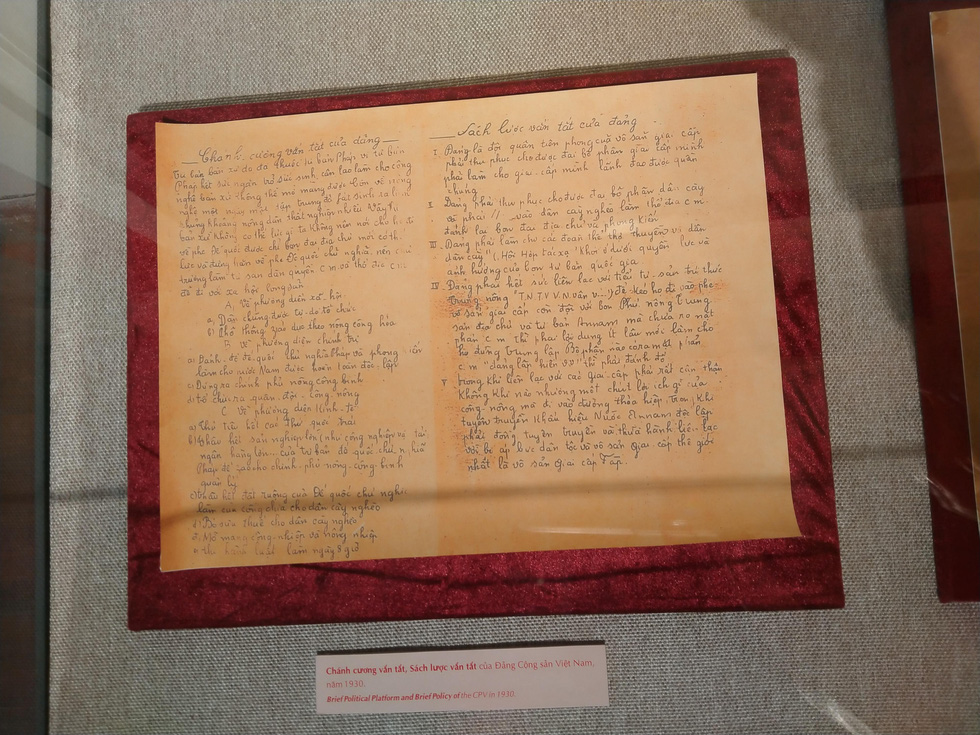 Chánh cương vắn tắt của đảng
Tư bản bản xứ đã thuộc tư bản Pháp, vì tư bản
Pháp hết sức ngăn trở sức sinh sản làm cho công
nghệ bản xứ không thể mở mang được. Còn về nông
nghệ một ngày một tập trung đã phát sinh ra lắm
khủng khoảng nông dân thất nghiệp nhiều. Vậy tư
bản bản xứ không có thế lực gì ta không nên nói cho họ đi
về phe đế quốc được chỉ bọn đại địa chủ mới có thế
lực và đứng hẳn về phe đế quốc chủ nghĩa nên chủ
trương làm tư sản dân quyền c.m và thổ địa c.m
để đi tới xã hội cộng sản
A. Về phương diện xã hội
a) Dân chúng được tự do tổ chức
b)
Phổ thông giáo dục theo nông công hóa
B. Về phương diện chính trị
a) Đánh đổ đế quốc chủ nghĩa Pháp và phong kiến
làm cho nước Nam được hoàn toàn độc lập
c) Dựng ra chính phủ nông công binh
d) tổ chức ra quân đội công nông
C. Về phương diện kinh tế
a) Thủ tiêu hết các thứ quốc trái
b) thâu hết sản nghiệp lớn (như công nghiệp vận tải
ngân hàng lớn... của tư bản đế quốc chủ nghĩa
Pháp để giao cho chính phủ nông công binh
quản lý
c) thâu hết đất ruộng của Đế quốc chủ nghĩa
làm của công chia cho dân cày nghèo
d) Bỏ sưu thuế cho dân cày nghèo
đ) Mở mang công nghiệp và nông nghiệp
thi hành luật làm ngày 8 giờ
Sách lược vắn tắt của đảng
I. Đảng là đội quân tiên phong của vô sản giai cấp
phải thu phục cho được đại bộ phận giai cấp mình
phải làm cho giai cấp mình lãnh đạo được quần
chúng
II. Đảng phải thu phục cho được đại bộ phận dân cày
và phải // vào dân cày nghèo làm thổ địa c.m
đánh lại bọn đại địa chủ và phong kiến
III. Đảng phải làm cho các đoàn thể thợ thuyền và dân
dân cày (... Hợp tác xã khỏi ở dưới quyền lực và
ảnh hưởng của bọn tư bản quốc gia
IV. Đảng phải hết sức liên lạc với tiểu tư sản trí thức
trung nông T.N, T.V.V.N vân v...) để kéo họ đi vào phe
vô sản giai cấp còn đối với bọn Phú nông Trung
sản địa chủ và tư bản Annam mà chưa ro mặt
phản c.m thì phải lợi dụng ít lâu mới làm cho
họ đứng trung lập Bộ phận nào đã ra mặt phản
c.m "đảng lập hiến v.v" thì phải đánh đổ
V. Trong khi liên lạc với các giai cấp phải rất cẩn thận
không khi nào nhường một chút lợi ích gì của
công nông mà đi vào đường thỏa hiệp, trong khi
tuyên truyền khẩu hiệu Nước Annam độc lập
phải đồng tuyên truyền và thực hành liên lạc
với bị áp bức dân tộc và vô sản giai cấp thế giới
nhất là vô sản giai cấp Pháp.
Chánh cương vắn tắt, Sách lược vắn tắt của Đảng Cộng sản Việt Nam,
năm 1930.
Brief Political Platform and Brief Policy of the CPV in 1930.